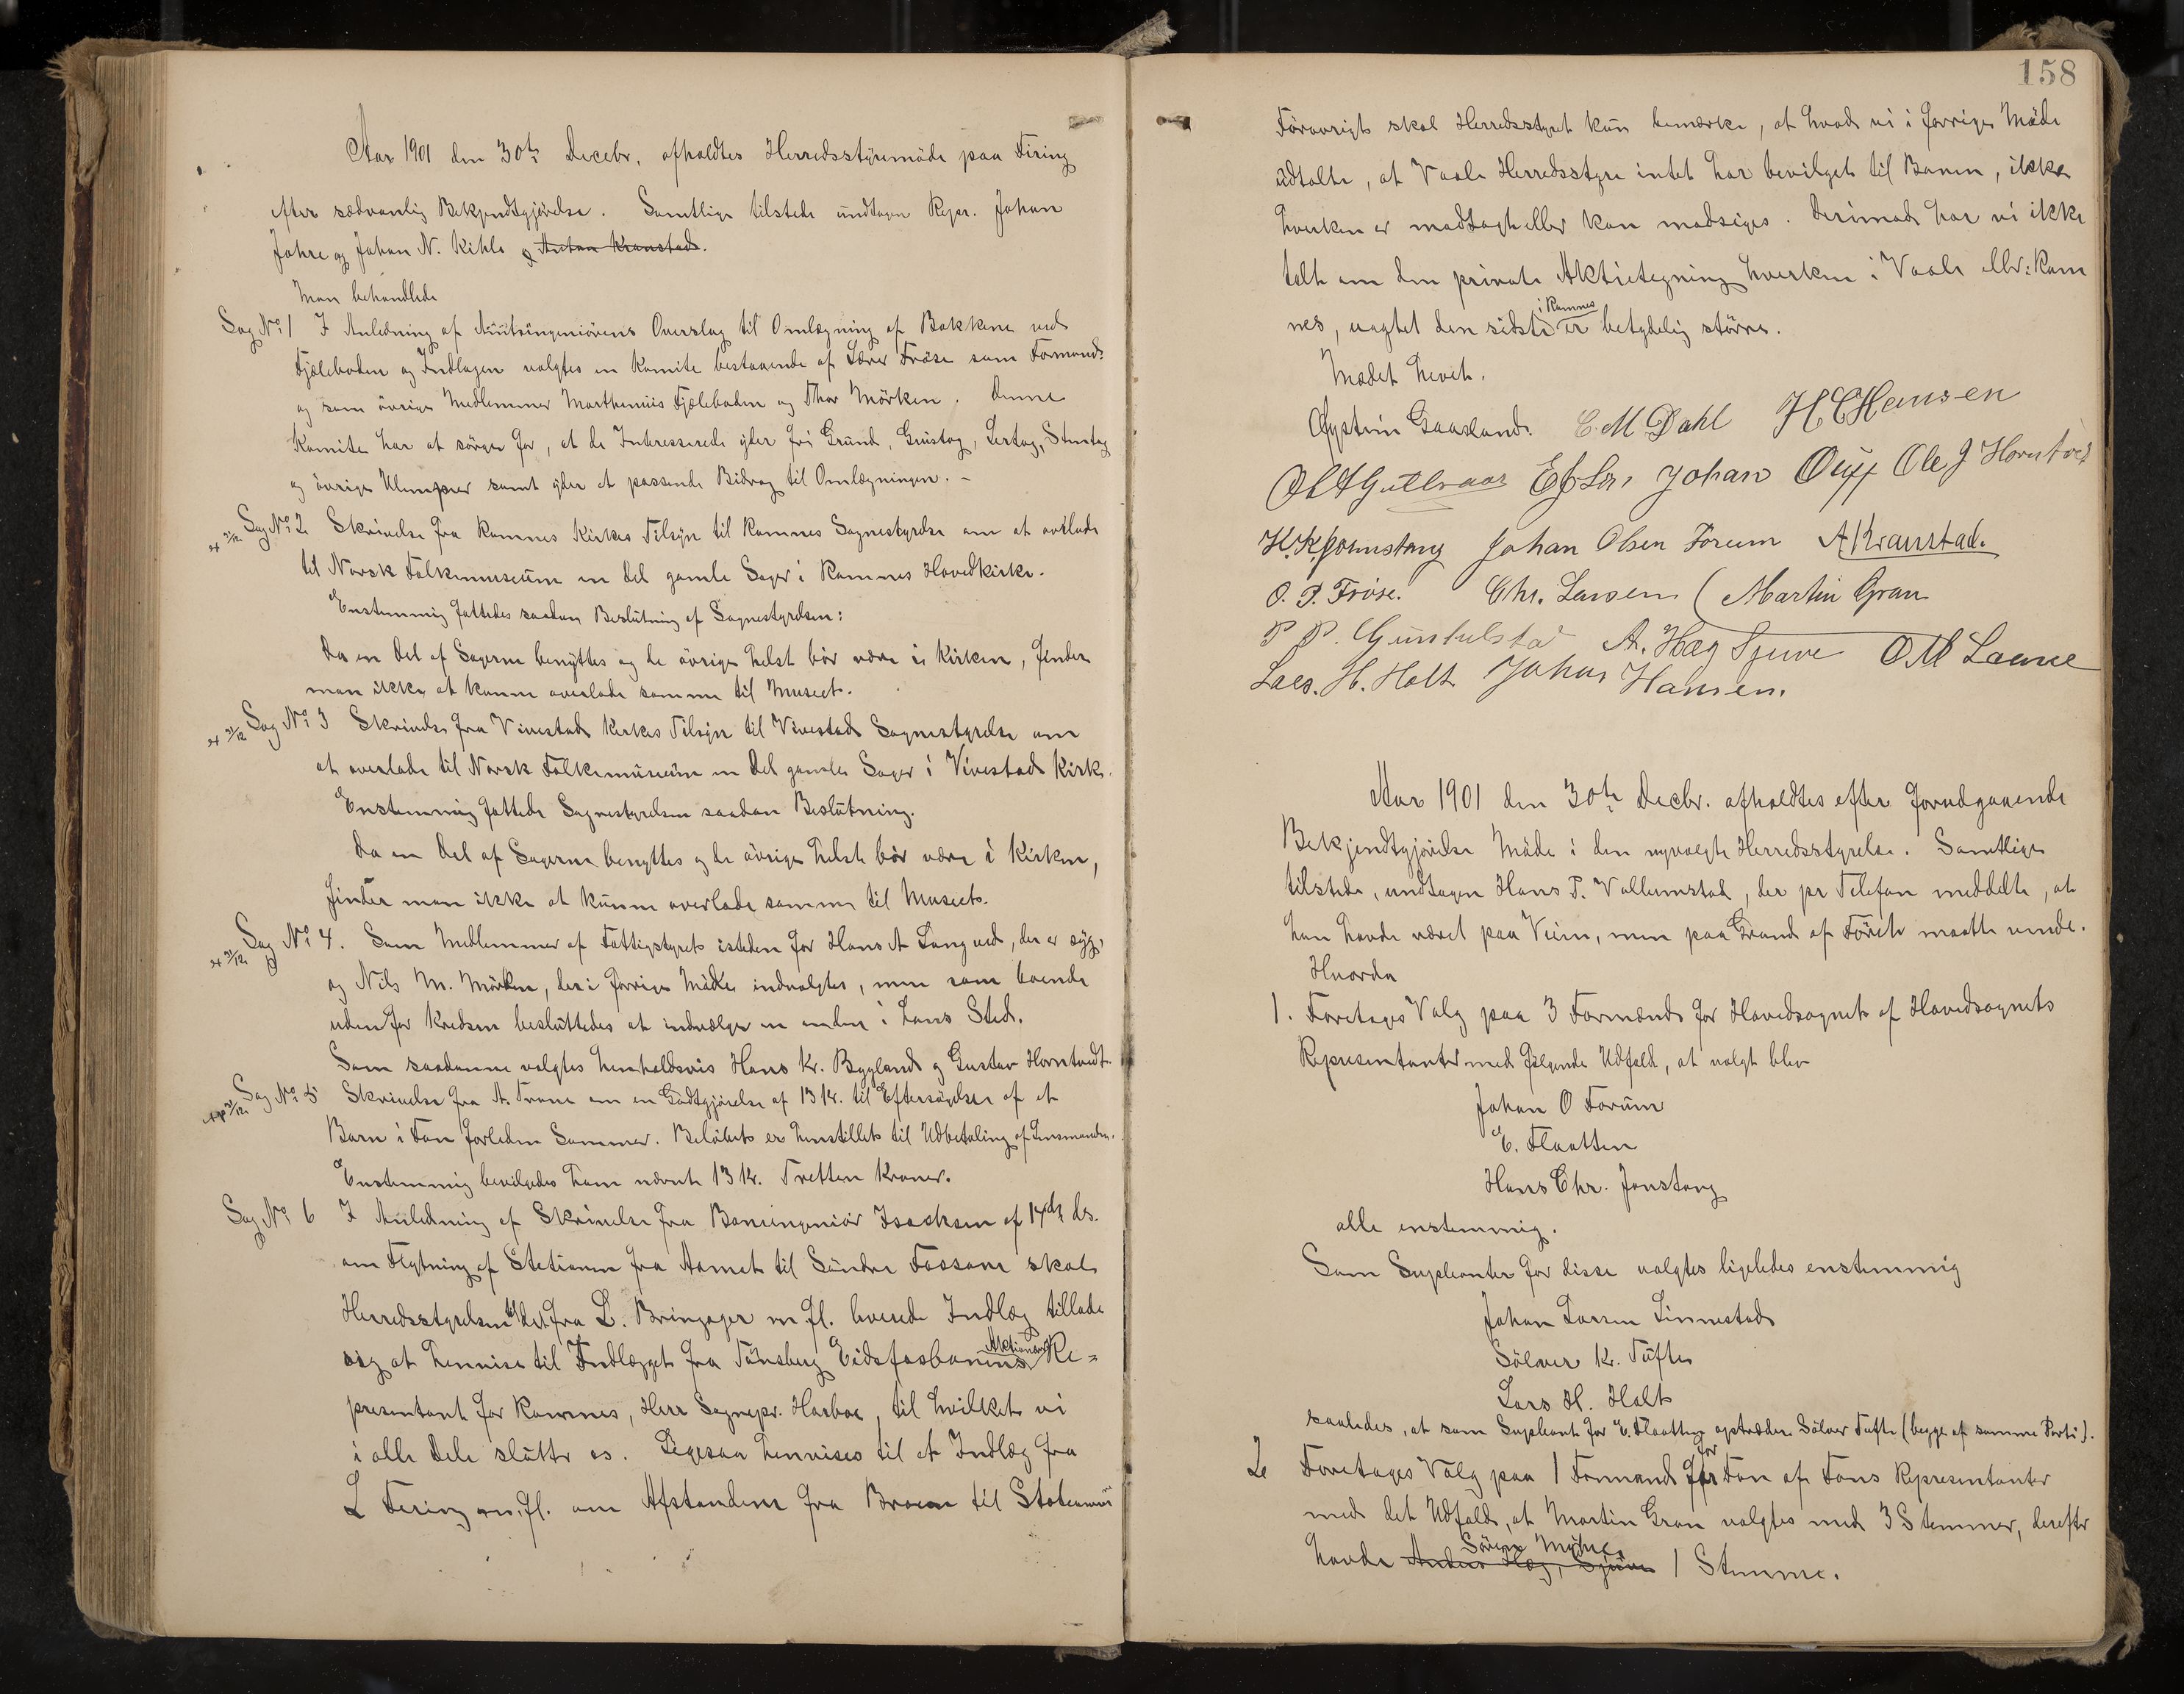 Aar 1901 den 30te Decebr. afholdtes Herredsstyremöde paa Firing
efter sædvanlig Bekjendtgjörelse. Samtlige tilstede undtagen Repr. Johan
Jahre og Johan N. Kihle og Anton Kranstad.
Man behandlede
Sag No 1 I Anledning af Amtsingeniörens Overslag til Omlægning af Bakkene ved
Fjæleboden og Indlagen valgtes en Komite bestaaende af Lærer Fröse som Formand
og som övrige Medlemmer Marthenius Fjæleboden og Thor Mörken. Denne
Komite har at sörge for, at de Interesserede yder fri Grund, Grustag, Lertag, Stentag
og övrige Ulemper samt yder et passende Bidrag til Omlægningen. -
Sag No 2 Skrivelse fra Ramnes Kirkes Tilsyn til Ramnes Sognestyrelse om at overlade
til Norsk Folkemuseum en Del gamle Sager i Ramnes Hovedkirke.
Enstemmig fattedes saadan Beslutning af Sognestyrelsen:
Da en Del af Sagerne benyttes og de övrige helst bör være i Kirken, finder
man ikke at kunne overlade samme til Museet.
Sag No 3 Skrivelse fra Vivestad Kirkes Tilsyn til Vivestad Sognestyrelse om
at overlade til Norsk Folkemuseum en Del gamle Sager i Vivestad Kirke.
Enstemmig fattede Sognestyrelsen saadan Beslutning.
Da en Del af Sagerne benyttes og de övrige helst bör være i Kirken,
finder man ikke at kunne overlade samme til Museet.
Sag No 4. Som Medlemmer af Fattigstyret isteden for Hans A Langved, der er syg,
og Nils M. Mörken, der i forrige Möde indvalgtes, men som boende
udenfor Kredsen besluttedes at indvælge en anden i hans Sted.
Som saadanne valgtes henholdsvis Hans Kr. Bygland og Gustav Horntvedt.
Sag No 5 Skrivelse fra A. Trane om en Godtgjörelse af 13 Kr. til Eftersögelse af et
Barn i Fon forleden Sommer. Belöbet er henstillet til Udbetaling af Lensmanden.
Enstemmig bevilgedes ham nævnte 13 Kr. Tretten Kroner.
Sag No 6 I Anledning af Skrivelse fra Baneingeniör Isachsen af 17de ds.
om Flytning af Stationen fra Aamot til Söndre Fossan skal
Herredsstyrelsen til det fra L. Bringager m fl. hverede Indlæg tillade
sig at henvise til Indlægget fra Tönsberg Eidsfosbanens Aktionær Re-
presentant for Ramnes, Herr Sognepr. Harboe, til hvilket vi
i alle Dele slutter os. Ligesaa henvises til et Indlæg fra
L Fering m. fl. om Afstandene fra Broen til Stationen
158
Foravrigt skal Herredsstyret kun bemærke, at hvad vi i forrige Möde
udtalte, at Vaale Herredsstyre intet har bevilget til Banen, ikke
hverken er modsagt eller kan modsiges. Derimod har vi ikke
talt om den private Aktietegning hverken i Vaale ell. i Ram
nes, uagtet den sidste i Ramnes er betydelig större.
Mödet hevet.
Öystein Gaasland. C. M Dahl H C Hansen
Johan Ole J Horntvet
H. K. Jonnstang Johan Olsen Forum A Kranstad.
O. P. Fröse. Chr. Larsen Martin Gran
P P. Gunhilstad A. Hæg Sjuve O M Laane
Lars. H. Holt Johan Hansen.
Aar 1901 den 30te Decbr. afholdtes efter forudgaaende
Bekjendtgjörelse Möde i den nyvalgte Herredsstyrelse. Samtlige
tilstede, undtagen Hans T. Vallumstad, der pr Telefon meddelte, at
han havde været paa Veien, men paa Grund af Föret maatte vende.
Hvorda
1. Foretoges Valg paa 3 Formænd for Hovedsognet af Hovedsognets
Representanter med fölgende Udfald, at valgt blev
Johan O Forum
E. Flaatten
Hans Chr. Jonstang
alle enstemmig.
Som Supleanter for disse valgtes ligeledes enstemmig
Johan Larsen Linnestad
Sölver K. Tufte
Lars H. Holt
saaledes, at som Supleant for E. Flaatten optræder Sölver Tufte (begge af samme Parti).
2 Foretoges Valg paa 1 Formand for Fon af Fons Representanter
med det Udfald, at Martin Gran valgtes med 3 Stemmer, derefter
havde Anders Hæg, Sjuve Sören Myhre 1 Stemme.